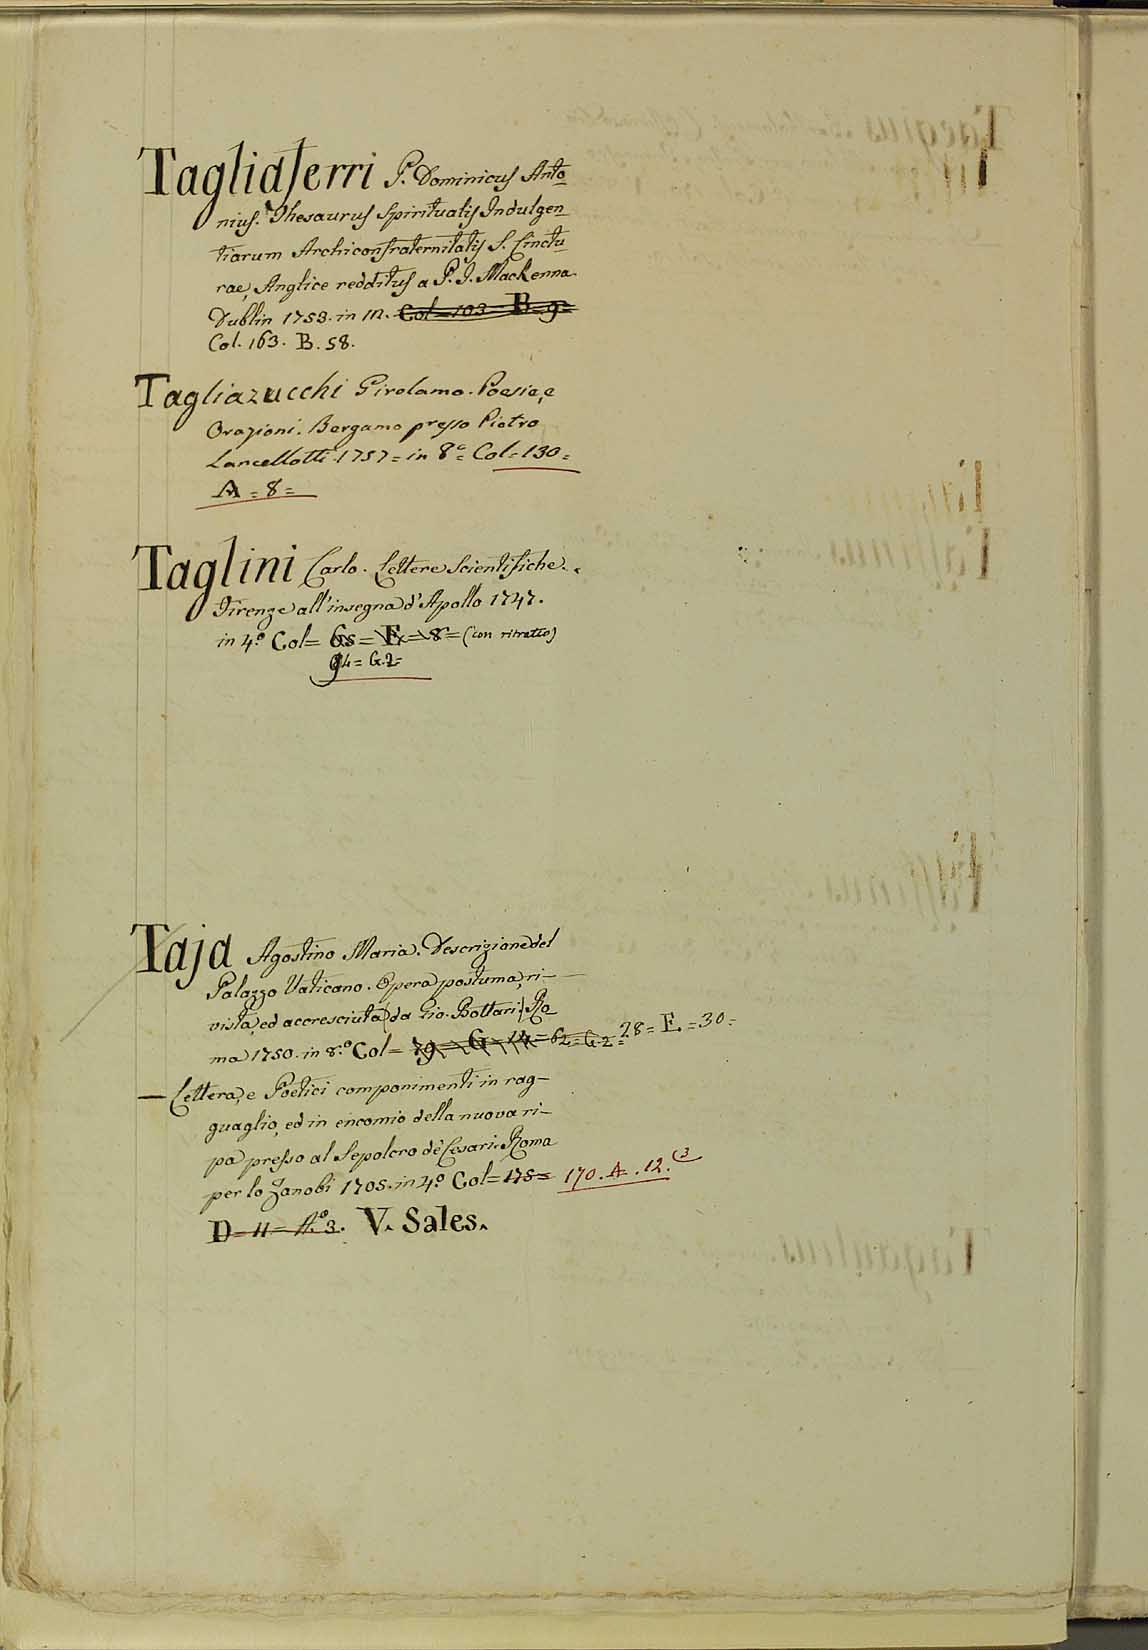 Tagliaferri P. Dominicus Anto
nius. Thesaurus Spiritualis Indulgen
tiarum Archiconfraternitatis S. Cinctu
rae, Anglice redditus a P. J. Mackenna.
Dublin 1753. in 12. Col=103=B=9=
Col. 163. B. 58.
Tagliazucchi Girolamo. Poesie, e
Orazioni. Bergamo presso Pietro
Lancellotti 1757= in 8º= Col=130=
A=8=
Taglini Carlo. Lettere Scientifiche.
Firenze all'insegna d'Apollo 1747.
in 4º Col= 68=F=8= (con ritratto)
94= G.2=
Taja Agostino Maria. Descrizione del
Palazzo Vaticano. Opera postuma, ri-
vista, ed accresciuta (da Gio. Bottari) Ro
ma 1750. in 8º Col= 79=G=14=62=G.2= 28=E=30=
— Lettera, e Poetici componimenti in rag-
guaglio, ed in encomio della nuova ri-
pa presso al Sepolcro de' Cesari. Roma
per lo Zanobi 1705. in 4º Col=175= 170. A. 12.(3
D=11= Nº 3. V. Sales.